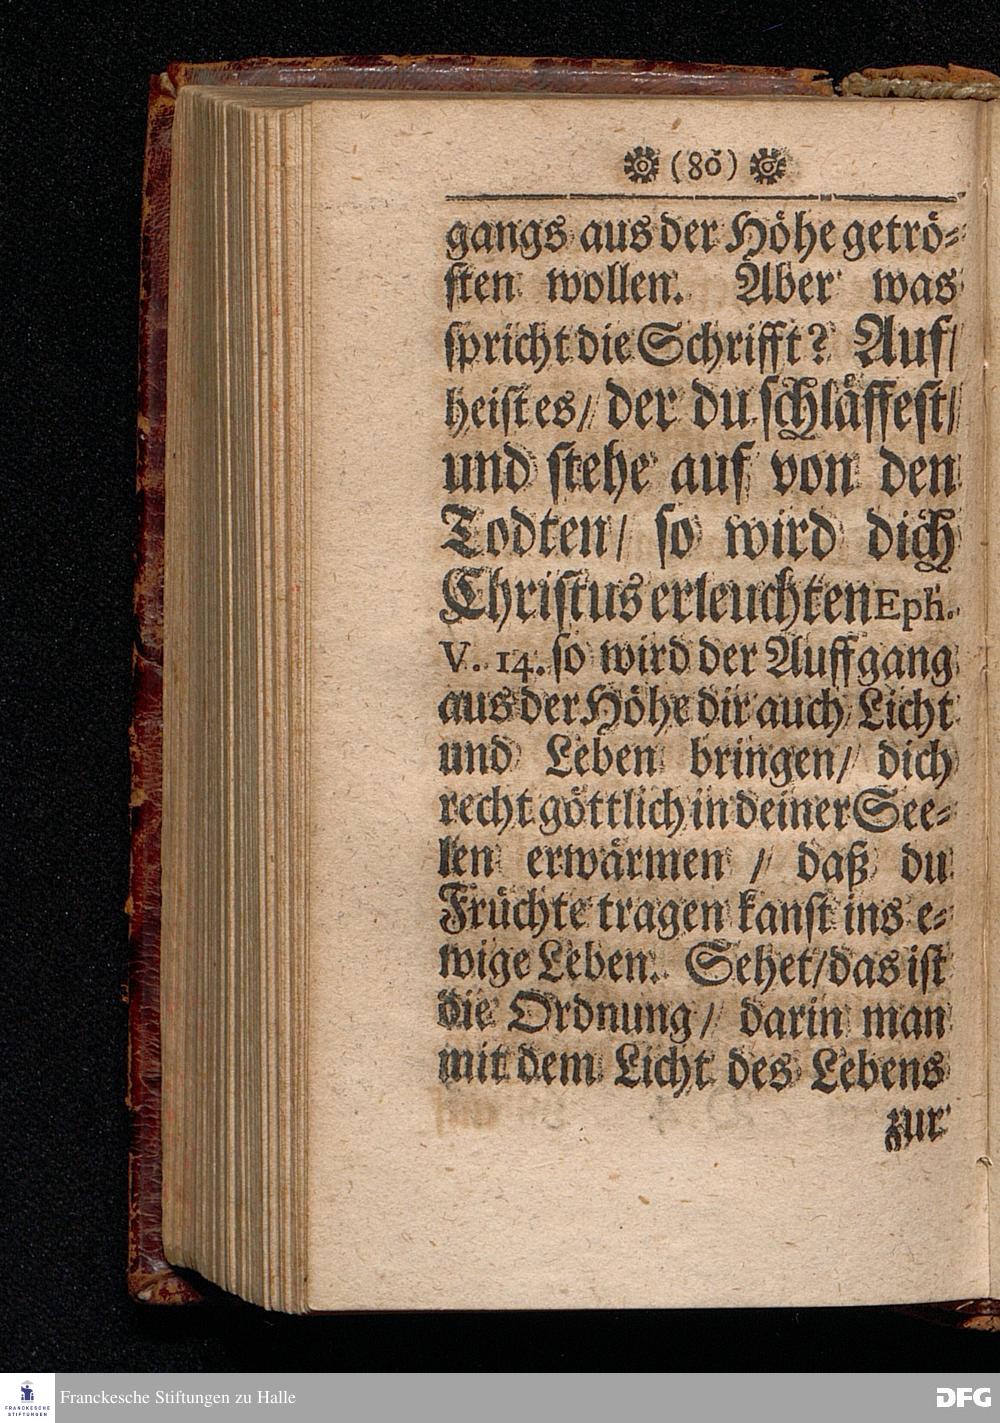 (80)
gangs aus der Höhe getrö-
sten wollen. Aber was
spricht die Schrifft? Auf/
heist es/ der du schläffest/
und stehe auf von den
Todten/ so wird dich
Christus erleuchten Eph.
V. 14. so wird der Auffgang
aus der Höhe dir auch Licht
und Leben bringen/ dich
recht göttlich in deiner See-
len erwärmen / daß du
Früchte tragen kanst ins e-
wige Leben. Sehet/ das ist
die Ordnung/ darin man
mit dem Licht des Lebens
zur
FRANCKESCHE
STIFTUNGEN
Franckesche Stiftungen zu Halle
DFG